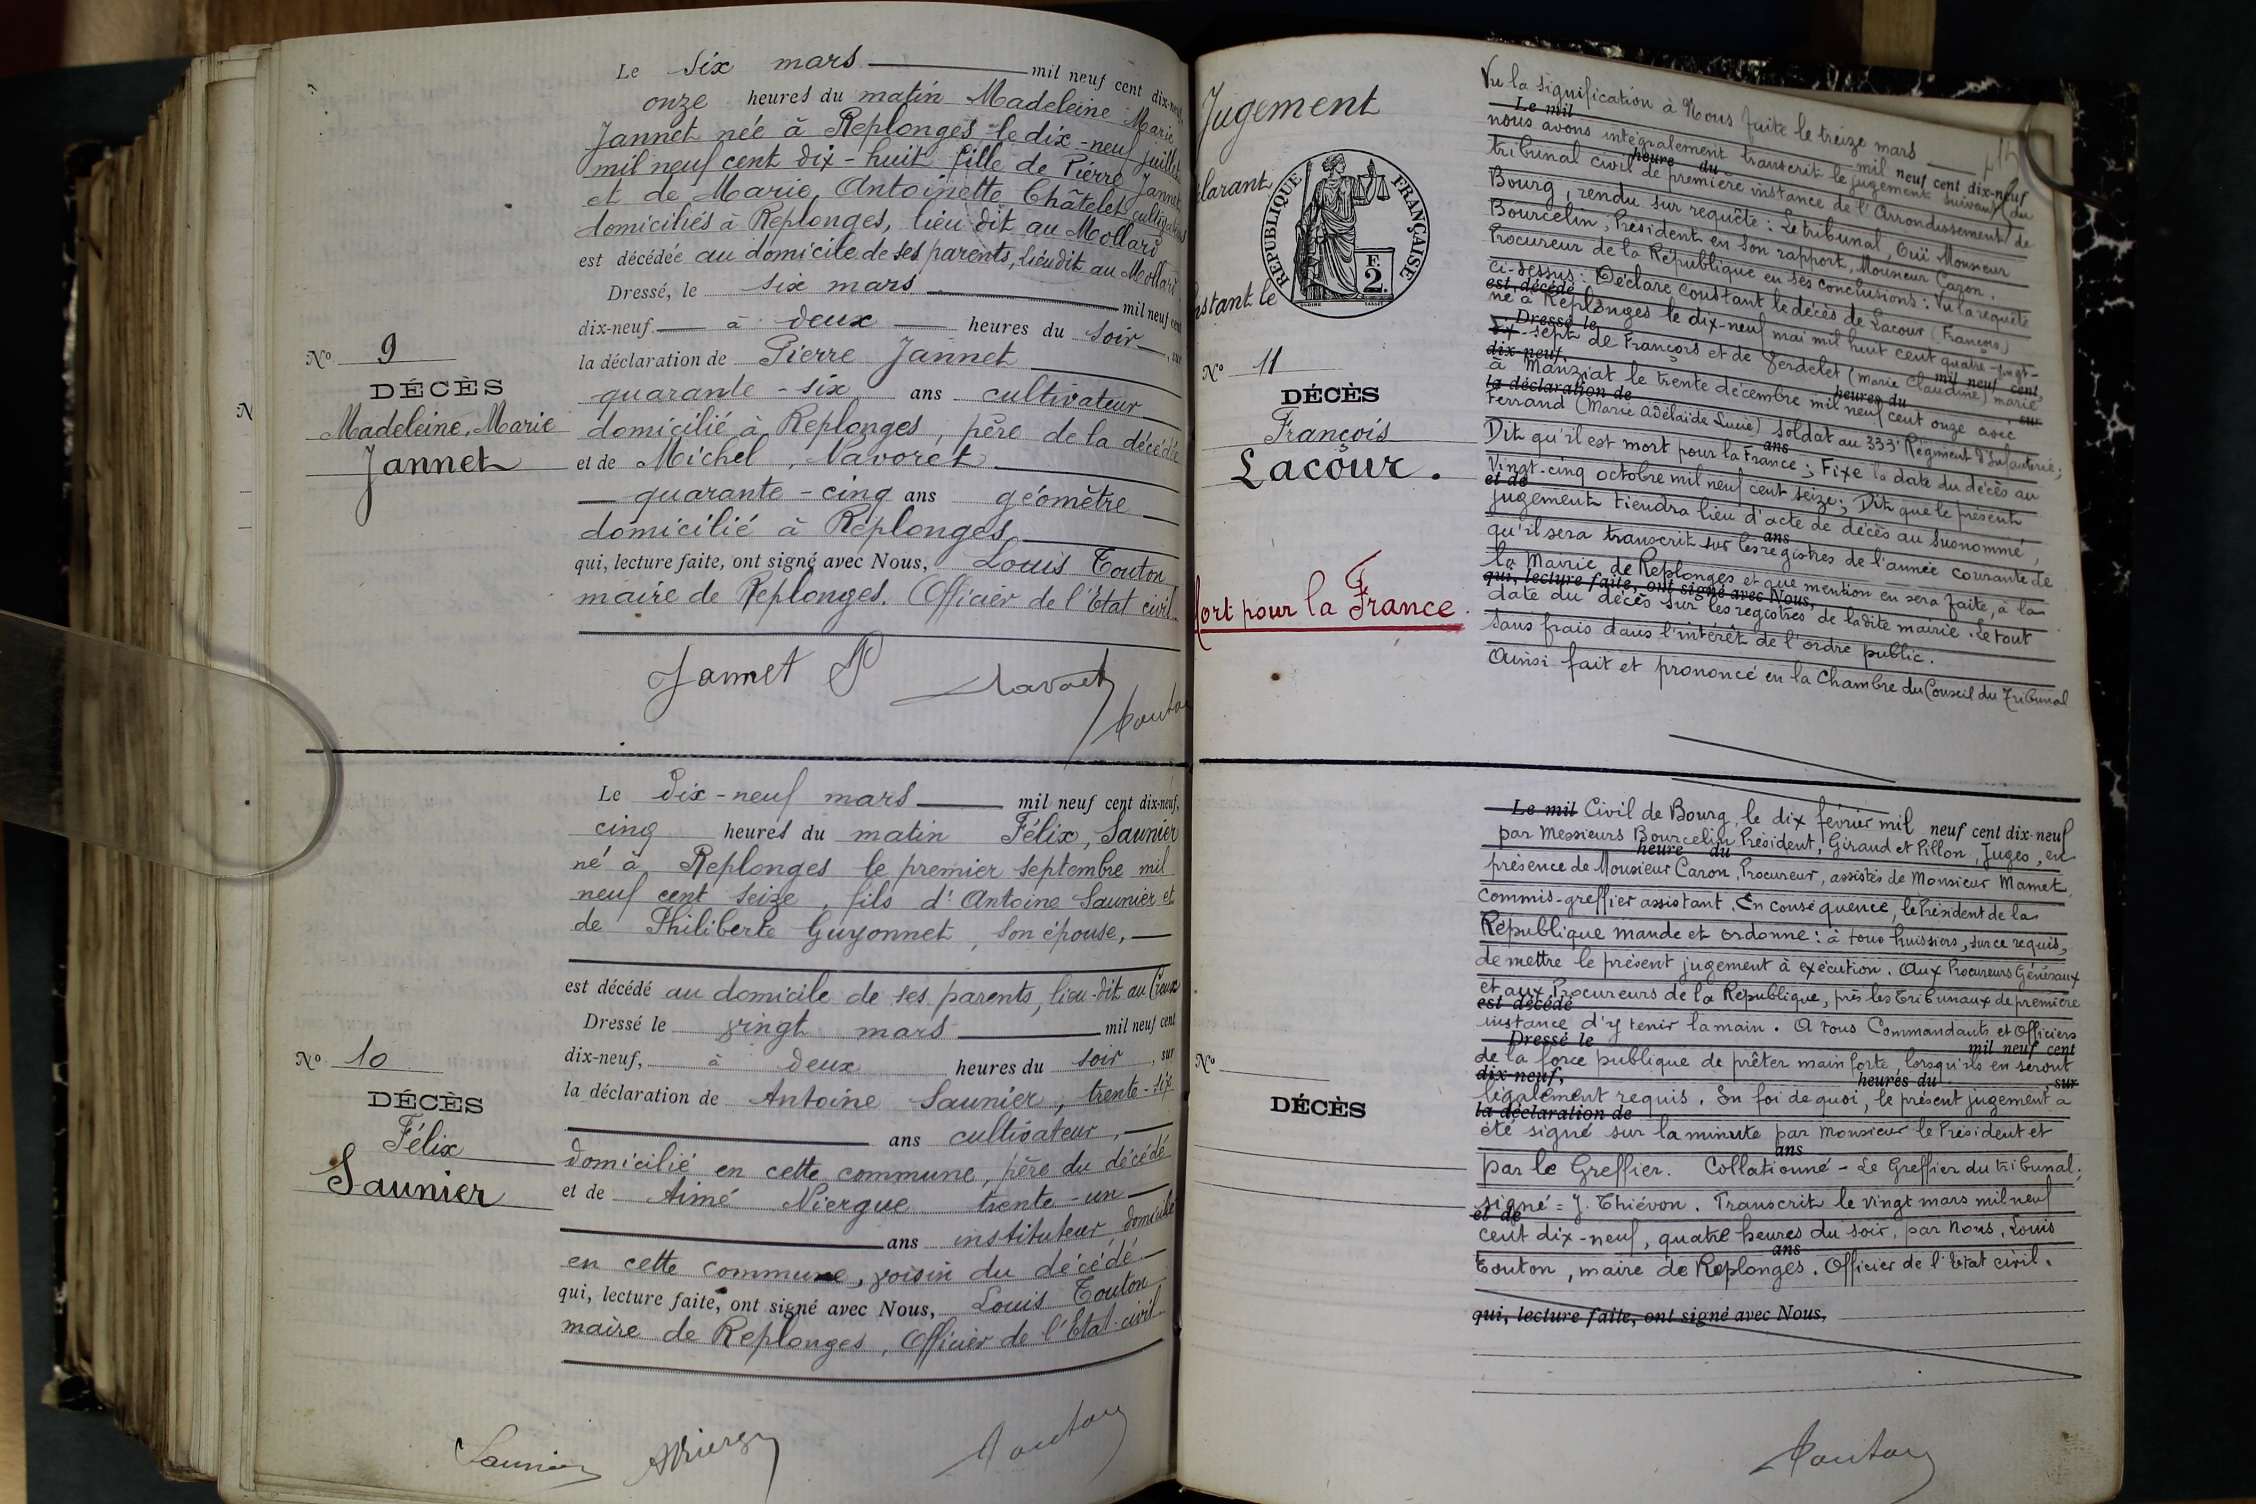 Le six mars mil neuf cent dix-neuf,
onze heures du matin Madeleine Marie
Jannet née à Replonges le dix-neuf juillet
mil neuf cent dix-huit fille de Pierre Jannet
et de Marie, Antoinette Châtelet cultivateurs
domiciliés à Replonges, lieu dit au Mollard
est décédée au domicile de ses parents, lieu dit au Mollard
Dressé, le six mars mil neuf cent
dix-neuf à deux heures du soir, sur
la déclaration de Pierre Jannet
quarante-six ans cultivateur
domicilié à Replonges, père de la décédée
et de Michel, Navoret
quarante-cinq ans géomètre
domicilié à Replonges
qui, lecture faite, ont signé avec Nous, Louis Touton
maire de Replonges. Officier de l'Etat civil
No 9
DÉCÈS
Madeleine, Marie
Jannet
N
Jannet P Navoret
Touton
Le dix-neuf mars mil neuf cent dix-neuf,
cinq heures du matin Félix, Saunier
né à Replonges le premier septembre mil
neuf cent seize, fils d'Antoine Saunier et
de Philiberte Guyonnet, son épouse,
est décédé au domicile de ses parents, lieu-dit au Creux
Dressé le vingt mars mil neuf cent
dix-neuf, à deux heures du soir, sur
la déclaration de Antoine Saunier, trente-six
ans cultivateur,
domicilié en cette commune, père du décédé
et de Aimé Niergue trente-un
ans instituteur domicilié
en cette commune, voisin du décédé
qui, lecture faite, ont signé avec Nous, Louis Touton
maire de Replonges, Officier de l'Etat-civil
No 10
DÉCÈS
Félix
Saunier
Saunier Touton
Jugement
clarant
RÉPUBLIQUE FRANÇAISE
F.
2.
nstant le
No 11
DÉCÈS
François
Lacour.
Mort pour la France.
Vu la signification à Nous faite le treize mars
Le mil mil neuf cent dix-neuf
nous avons intégralement transcrit le jugement suivant du
heure du
tribunal civil de première instance de l'Arrondissement de
Bourg, rendu sur requête: Le tribunal, Ouï Monsieur
Bourcelin, Président en son rapport, Monsieur Caron,
Procureur de la République en ses conclusions: Vu la requête
ci-dessus: Déclare constant le décès de Lacour (François)
est décédé
né à Replonges le dix-neuf mai mil huit cent quatre-vingt-
Dressé le mil neuf cent
dix-sept de François et de Ferdelet (Marie Claudine) marié
dix-neuf, heures du sur
à Manziat le trente décembre mil neuf cent onze avec
la déclaration de
Ferrand (Marie Adélaïde Lucie) soldat au 333e Régiment d'Infanterie;
ans
Dit qu'il est mort pour la France; Fixe la date du décès au
vingt-cinq octobre mil neuf cent seize; Dit que le présent
et de
jugement tiendra lieu d'acte de décès au susnommé,
ans
qu'il sera transcrit sur les registres de l'année courante de
la Mairie de Replonges et que mention en sera faite, à la
qui, lecture faite, ont signé avec Nous,
date du décès sur les registres de ladite mairie. Le tout
sans frais dans l'intérêt de l'ordre public.
Ainsi fait et prononcé en la Chambre du Conseil du Tribunal
Le mil Civil de Bourg, le dix février mil neuf cent dix-neuf
par Messieurs Bourcelin Président, Giraud et Pillon, Juges, en
heure du
présence de Monsieur Caron, Procureur, assistés de Monsieur Mamet
commis-greffier assistant. En conséquence, le Président de la
République mande et ordonne: à tous huissiers, sur ce requis,
de mettre le présent jugement à exécution. Aux Procureurs Généraux
et aux Procureurs de la République, près les tribunaux de première
est décédé
instance d'y tenir la main. A tous Commandants et Officiers
Dressé le mil neuf cent
de la force publique de prêter main forte, lorsqu'ils en seront
dix-neuf, heures du sur
légalement requis. En foi de quoi, le présent jugement a
la déclaration de
été signé sur la minute par Monsieur le Président et
ans
par le Greffier. Collationné - Le Greffier du tribunal;
signé = J. Thiévon. Transcrit le vingt mars mil neuf
et de
cent dix-neuf, quatre heures du soir, par Nous, Louis
ans
Touton, maire de Replonges. Officier de l'Etat civil.
qui, lecture faite, ont signé avec Nous,
No
DÉCÈS
Touton